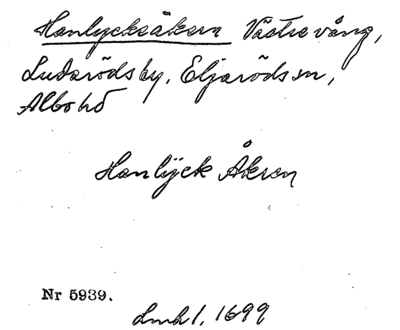 Hanlycksåkern Västre vång,
Ludarödsby, Eljaröds sn,
Albo hd
Hanlÿck Åkren
Nr 5939.
Lmh 1. 1699